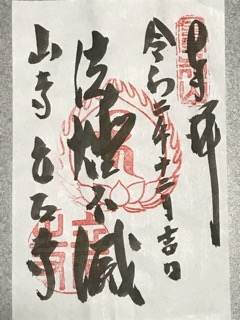 奉拝
令和二年十二月吉日
法燈不滅
山寺 立石寺